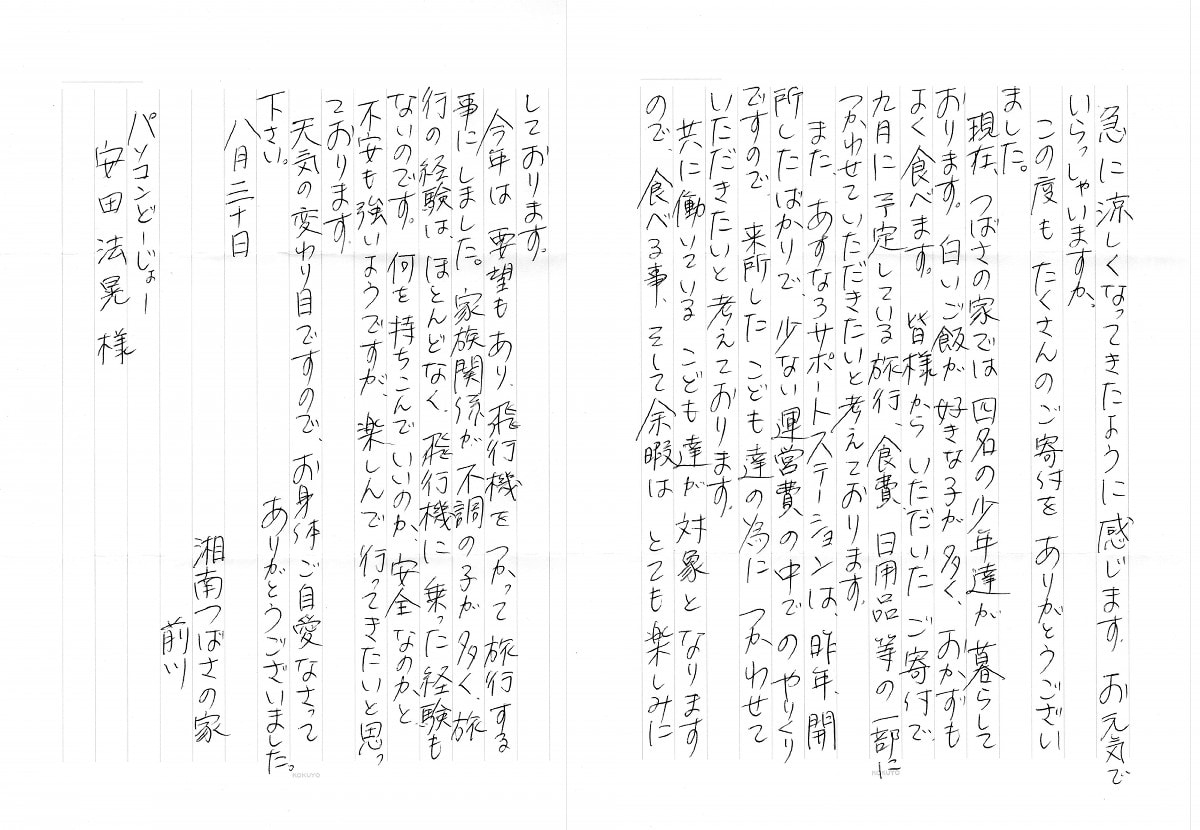 急に涼しくなってきたように感じます。お元気で
いらっしゃいますか。
この度も たくさんのご寄付を ありがとうござい
ました。
現在、つばさの家では 四名の少年達が 暮らして
おります。白いご飯が 好きな子が 多く、おかずも
よく食べます。皆様から いただいた ご寄付で、
九月に予定している旅行、食費、日用品等の一部に
つかわせていただきたいと考えております。
また、あすなろサポートステーションは、昨年、開
所したばかりで、少ない運営費の中でのやりくり
ですので、来所した こども達の為に つかわせて
いただきたいと考えております。
共に働いている こども達が 対象となります
ので、食べる事、そして余暇は とても楽しみに
しております。
今年は 要望もあり、飛行機を つかって旅行する
事にしました。家族関係が 不調の子が多く、旅
行の経験は ほとんどなく、飛行機に 乗った経験も
ないのです。何を持ちこんで いいのか、安全なのかと、
不安も強いようですが、楽しんで 行ってきたいと思っ
ております。
天気の変わり目ですので、お身体ご自愛なさって
下さい。
ありがとうございました。
八月二十日
湘南つばさの家
前川
パソコンどーじょー
安田法晃様
KOKUYO
KOKUYO